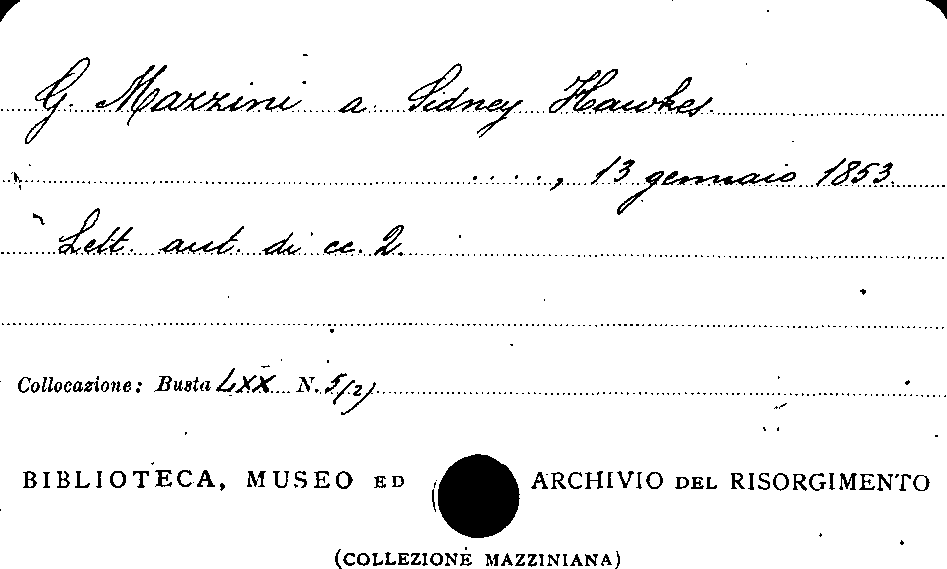 G. Mazzini a Sidney Hawkes
...., 13 gennaio 1853.
Lett. aut. di cc. 2.
Collocazione: Busta LXX N. 5/(2)
BIBLIOTECA, MUSEO ED ARCHIVIO DEL RISORGIMENTO
(COLLEZIONE MAZZINIANA)